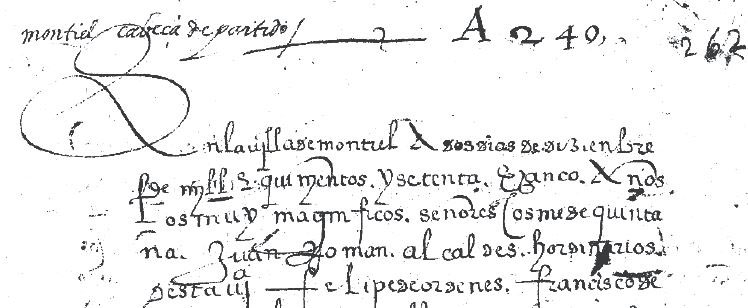 montiel cabeça de partido / A 240, 262
En la uilla de montiel A dos dias de dizienbre
de mill E quinientos. y setenta. E çinco. Años
los muy magnificos. señores Cosme de quinta
ña. Juan Roman. alcaldes. hordinarios
desta uiª felipe de ordenes. françisco de